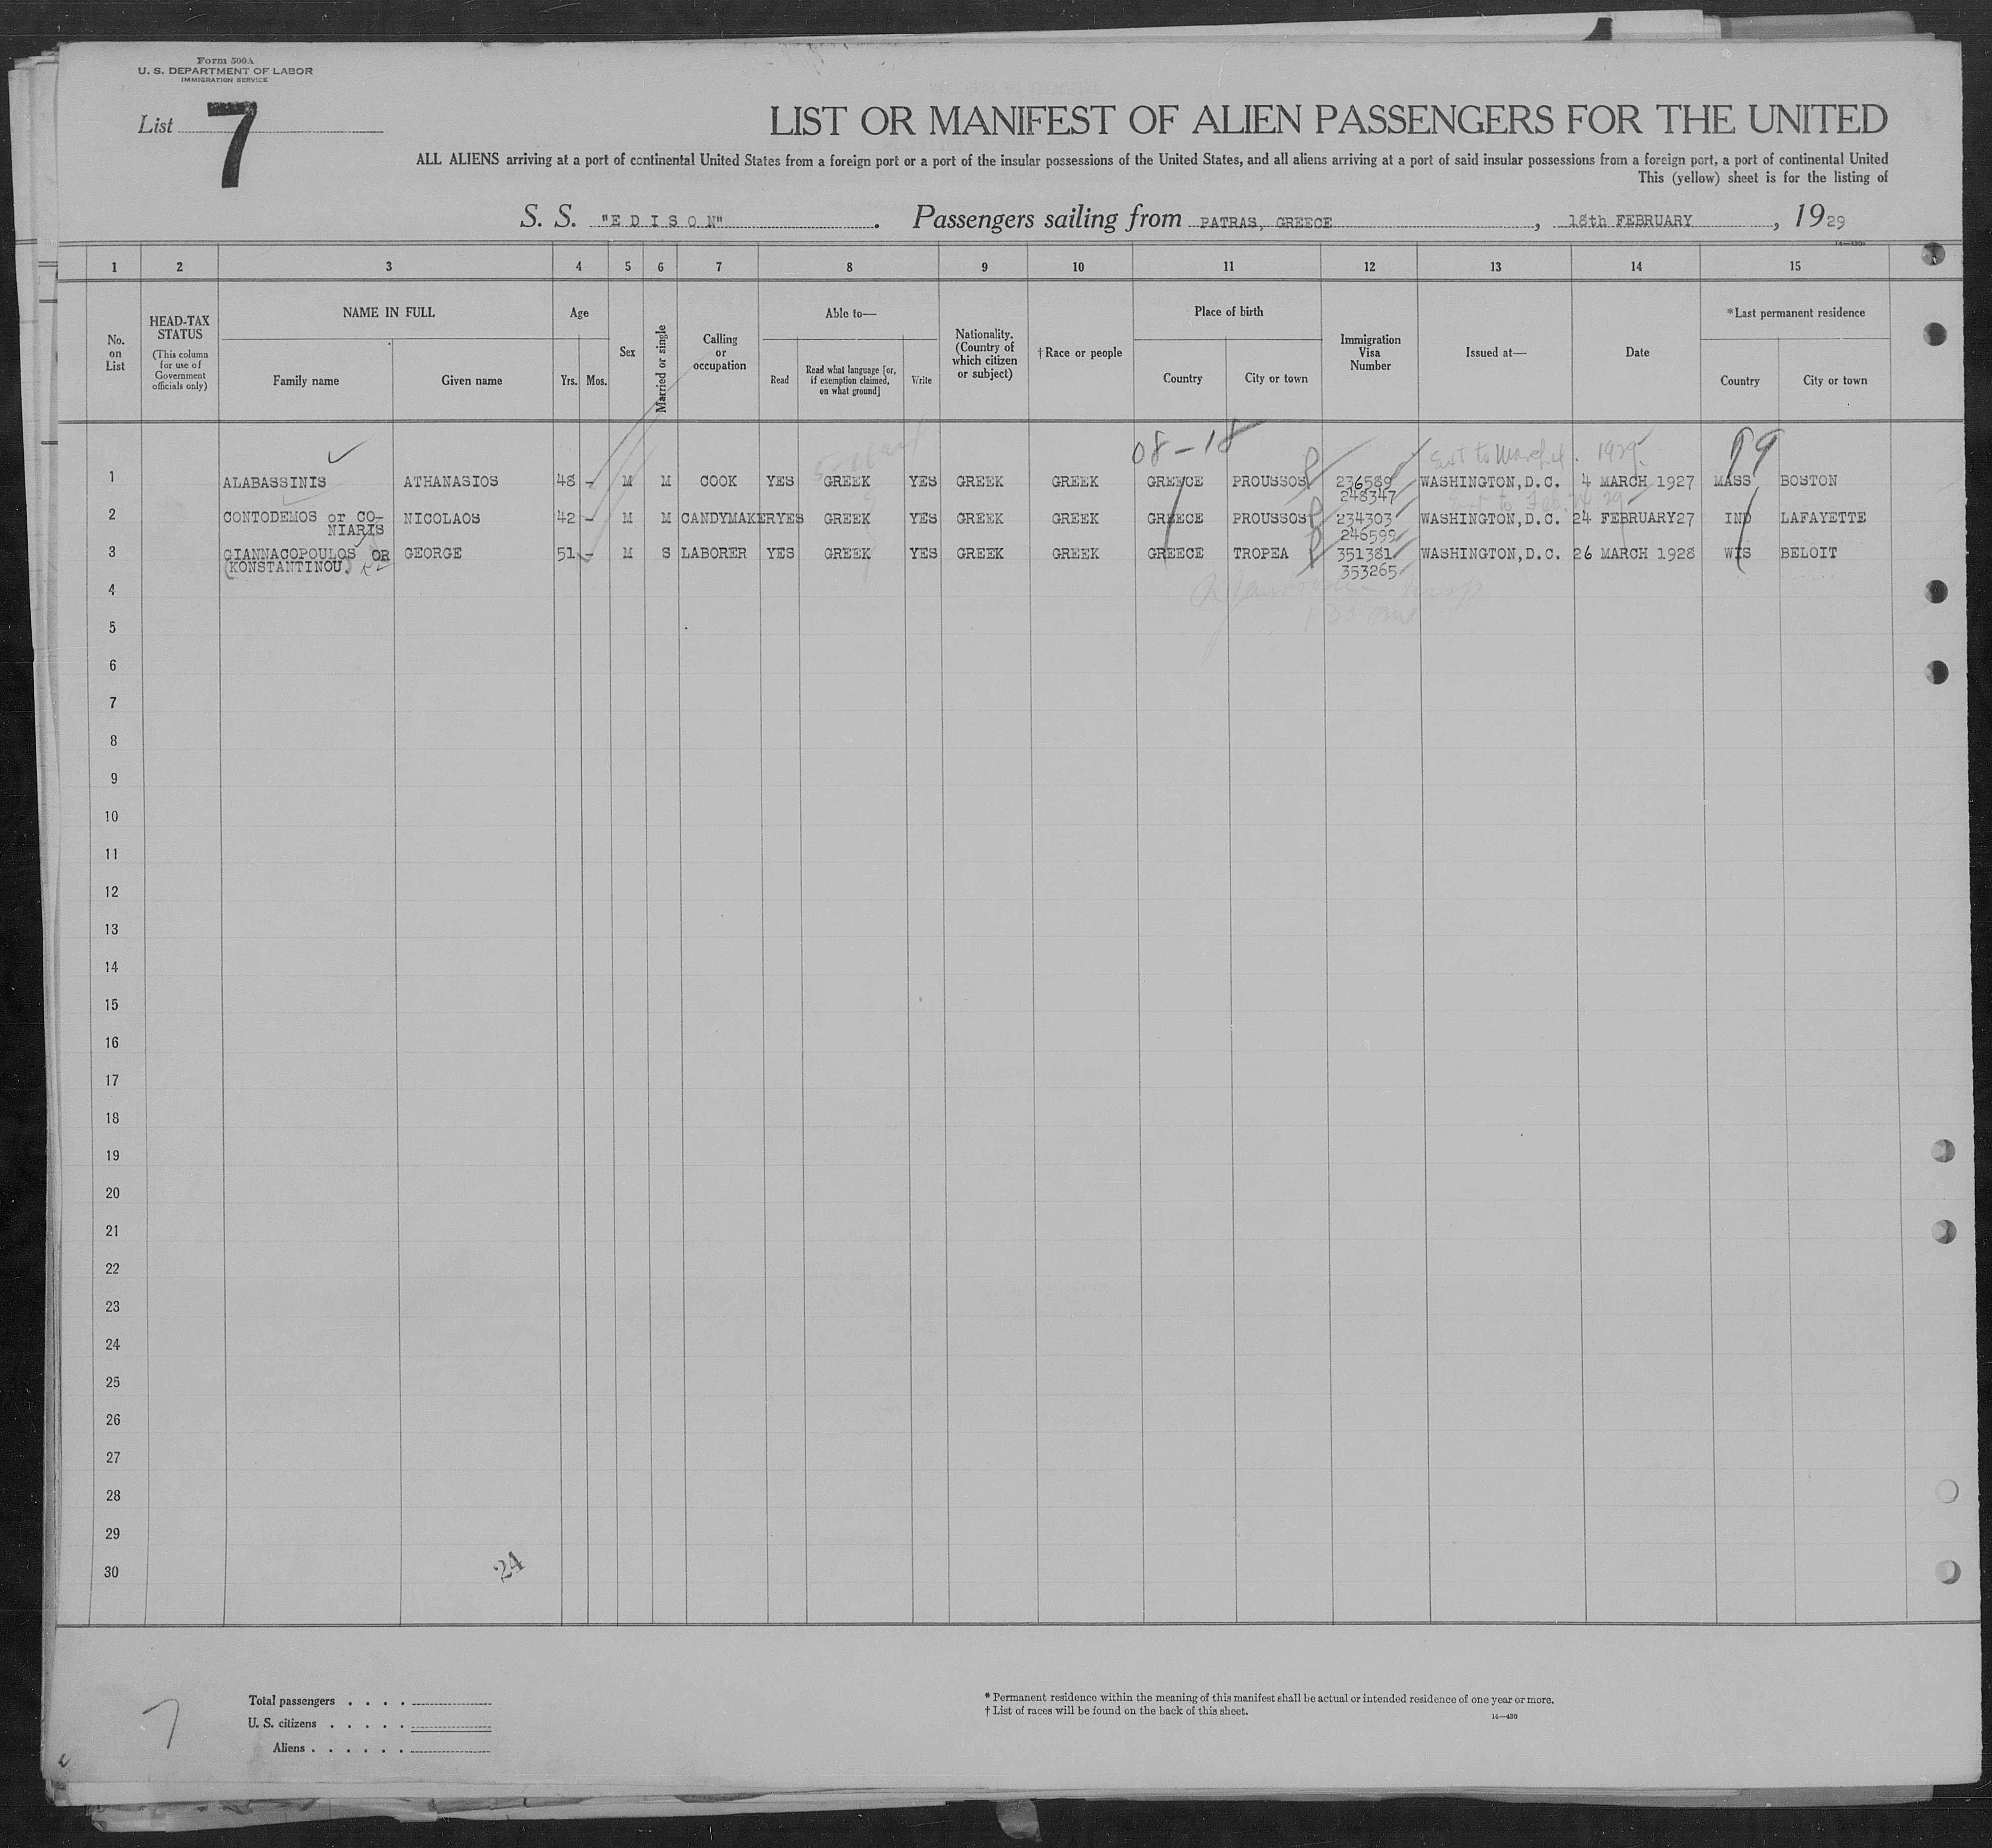 Form 500A
U. S. DEPARTMENT OF LABOR
IMMIGRATION SERVICE
List 7
LIST OR MANIFEST OF ALIEN PASSENGERS FOR THE UNITED
ALL ALIENS arriving at a port of continental United States from a foreign port or a port of the insular possessions of the United States, and all aliens arriving at a port of said insular possessions from a foreign port, a port of continental United
This (yellow) sheet is for the listing of
S. S. "EDISON". Passengers sailing from PATRAS, GREECE, 18th FEBRUARY, 1929
1 2 3 4 5 6 7 8 9 10 11 12 13 14 15
No. on List
HEAD-TAX STATUS
(This column for use of Government officials only)
NAME IN FULL
Family name
Given name
Age
Yrs.
Mos.
Sex
Married or single
Calling or occupation
Able to—
Read
Read what language [or, if exemption claimed, on what ground]
Write
Nationality. (Country of which citizen or subject)
†Race or people
Place of birth
Country
City or town
Immigration Visa Number
Issued at—
Date
*Last permanent residence
Country
City or town
08-18
Ext to March 4. 1929.
99
1 ALABASSINIS ATHANASIOS 48 - M M COOK YES GREEK YES GREEK GREEK GREECE PROUSSOS 236589 WASHINGTON,D.C. 4 MARCH 1927 MASS BOSTON
248347
Ext to Feb. 24 29
2 CONTODEMOS or CO- NICOLAOS 42 - M M CANDYMAKER YES GREEK YES GREEK GREEK GREECE PROUSSOS 234303 WASHINGTON,D.C. 24 FEBRUARY27 IND LAFAYETTE
NIARIS
246599
3 GIANNACOPOULOS OR GEORGE 51 - M S LABORER YES GREEK YES GREEK GREEK GREECE TROPEA 351381 WASHINGTON,D.C. 26 MARCH 1928 WIS BELOIT
(KONSTANTINOU)
353265
4
5
6
7
8
9
10
11
12
13
14
15
16
17
18
19
20
21
22
23
24
25
26
27
28
29
30
24
7
Total passengers . . . .
U. S. citizens . . . . .
Aliens . . . . . .
* Permanent residence within the meaning of this manifest shall be actual or intended residence of one year or more.
† List of races will be found on the back of this sheet.
14—430